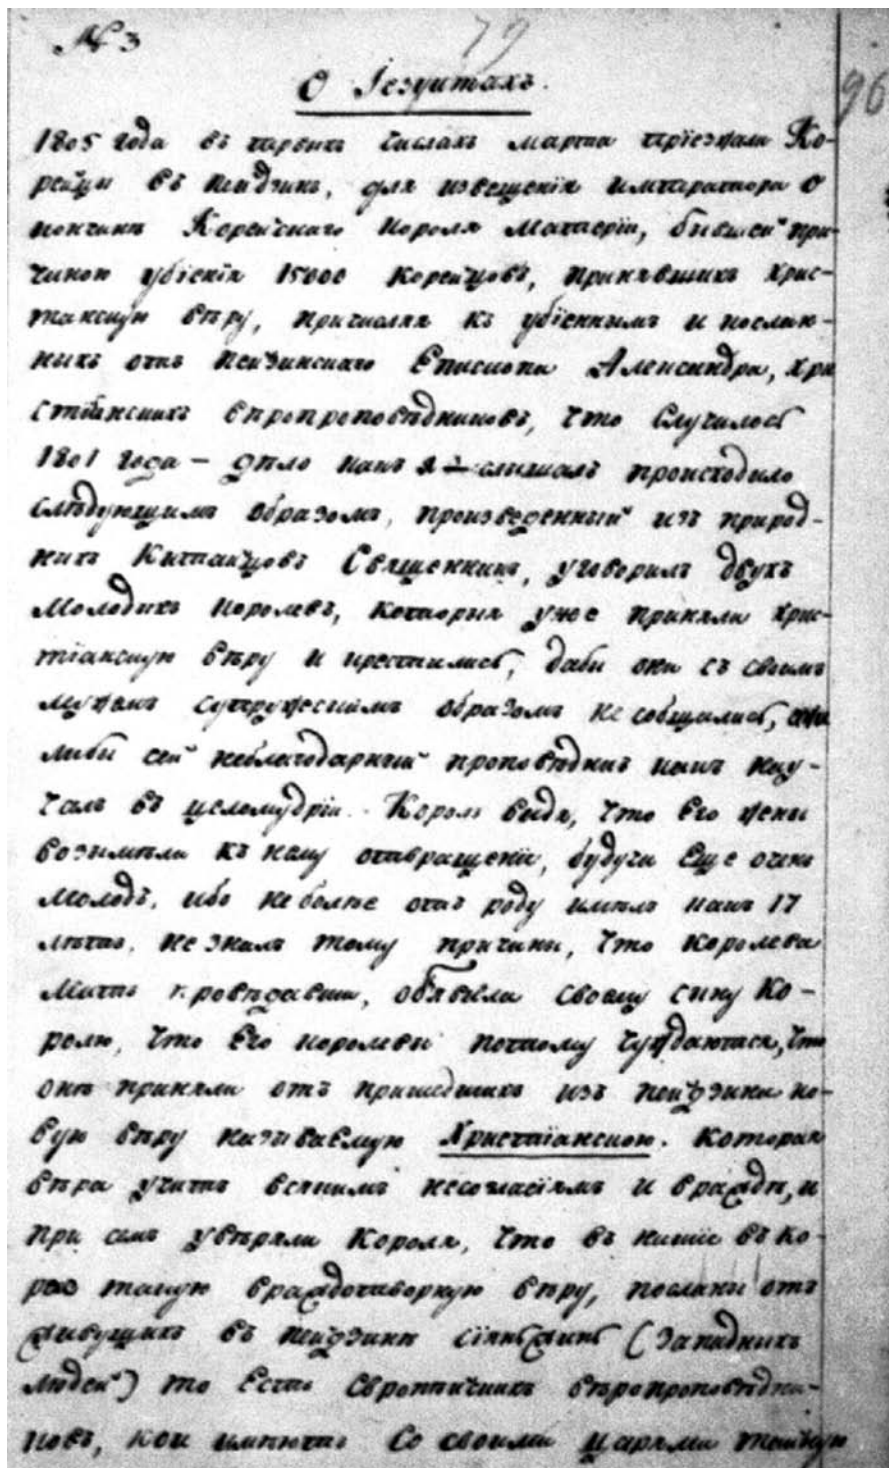 № 3
79
96
О Іезуитахъ.
1805 года въ первыхъ числахъ марта пріезжали Ко-
рейцы въ Пейдзинъ, для извещенія императора о
кончинѣ Корейскаго Короля Матери, бывшей при-
чиною убіенія 15000 Корейцовъ, принявшихъ хрис-
танскую вѣру, причисляя къ убіеннымъ и послан-
ныхъ отъ Пейзинскаго Епископа Александра, хри
стіанскихъ вѣропроповѣдниковъ, что Случилось
1801 года – дѣло какъ я слышалъ происходило
слѣдующимъ образомъ, произведенный изъ природ-
ныхъ Китайцовъ Священникъ, уговорилъ двухъ
Молодыхъ королевъ, которыя уже приняли хрис-
тіанскую вѣру и крестились, дабы они съ своимъ
мужемъ супружескимъ образомъ не собщались,
либы сей неблагодарный проповѣдник какъ нау-
чалъ въ целомудріи. Король видя, что Его жены
возимѣли къ нему отвращеніе, будучи Еще очень
Молодъ, ибо не болѣе отъ роду имѣлъ какъ 17
лѣтъ, не зналъ тому причины, что королева
Мать провѣдавши, объявила своему сыну Ко-
ролю, что Его королевы потому чуждаются, что
онѣ приняли отъ пришедшихъ изъ Пейдзина но-
вую вѣру называемую Христіанскою. Которая
вѣра учитъ всякимъ несогласіямъ и враждѣ, и
при семъ увѣряли Короля, что въ нынѣ въ Ко-
рею такую враждотворную вѣру, посланы отъ
живущихъ въ Пейдзинѣ (западныхъ
людей) то Есть Европейскихъ вѣропроповѣдни-
ковъ, кои имѣютъ Со своими царями тайную